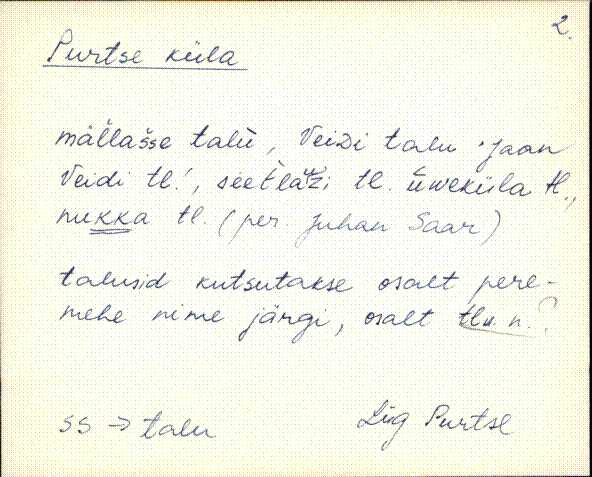 2.
Purtse küla
mällašse talu, Veidi talu Jaan
Veidi tl., seetlatzi tl. üweküla tl.,
nukka tl. (per. Juhan Saar)
talusid kutsutakse osalt pere-
mehe nime järgi, osalt tlu. n.?
ss → talu
Liig Purtse